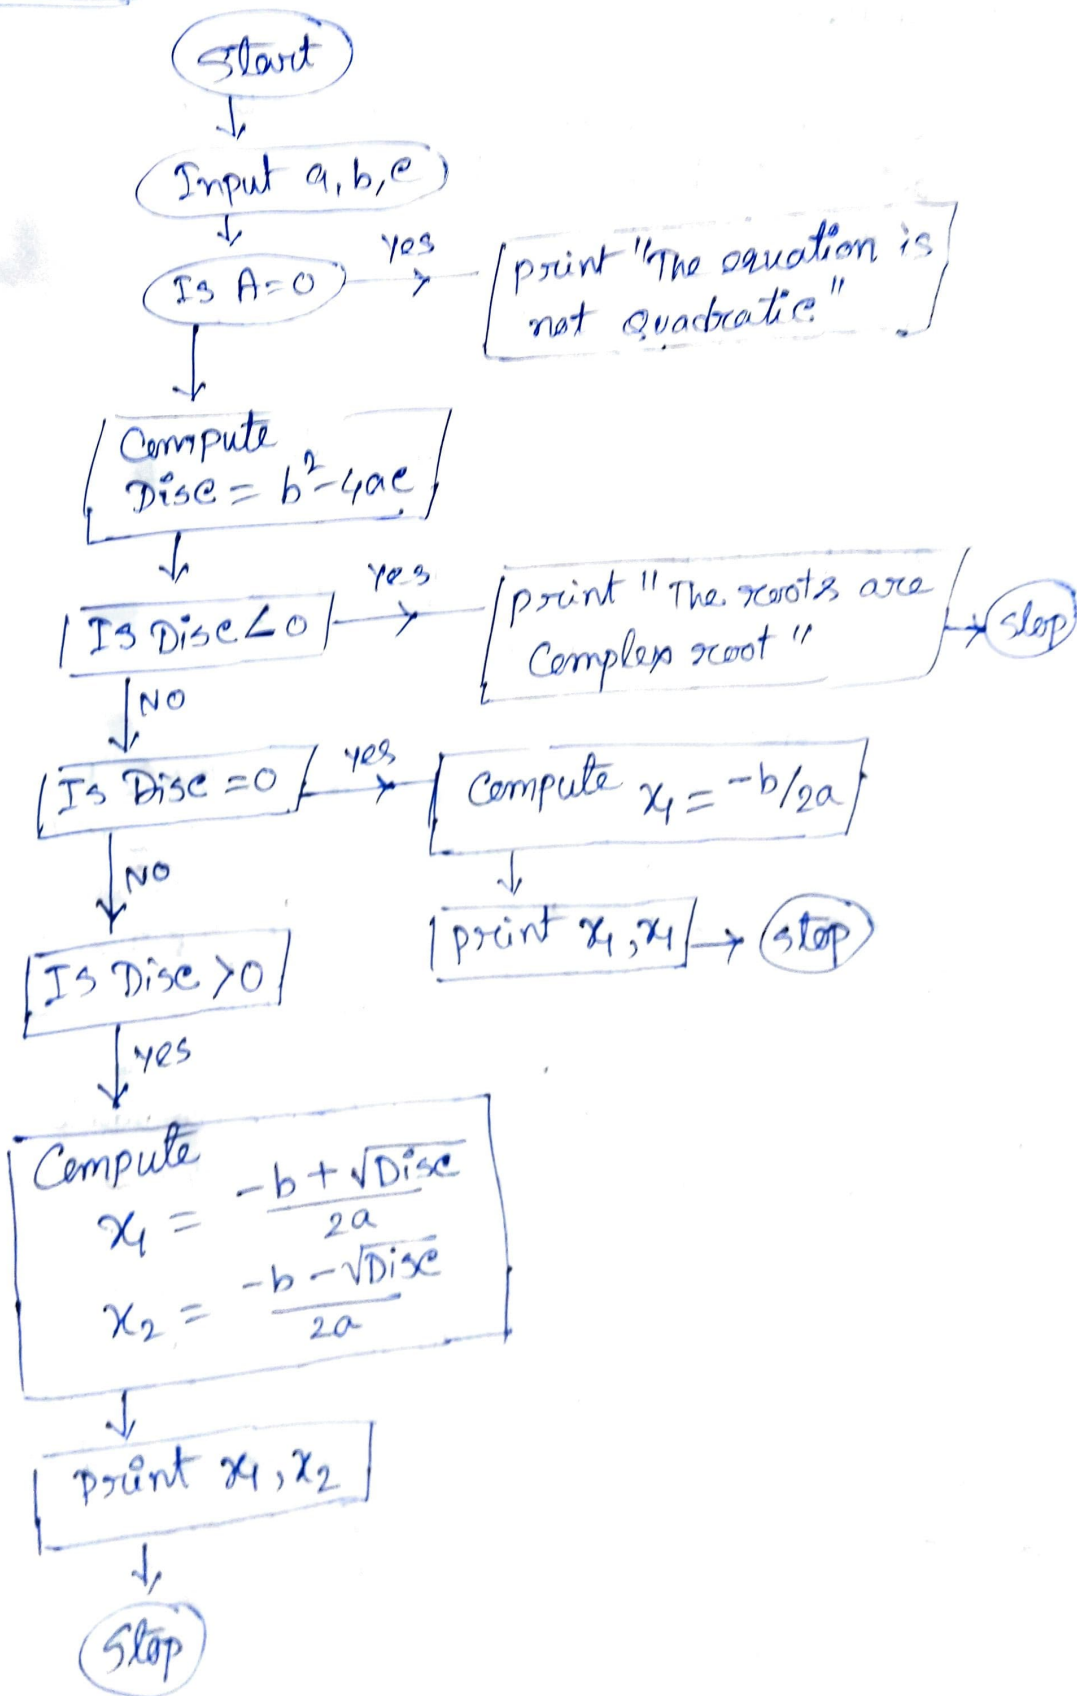 Start
Input a, b, c
Is A=0
Yes
print "The equation is
not Quadratic"
Compute
Disc = b²-4ac
Is Disc<0
Yes
print "The roots are
Complex root"
Stop
NO
Is Disc =0
yes
Compute x₁ = -b/2a
print x₁, x₁
Stop
NO
Is Disc >0
yes
Compute
x₁ = -b+√Disc / 2a
x₂ = -b-√Disc / 2a
Print x₁, x₂
Stop